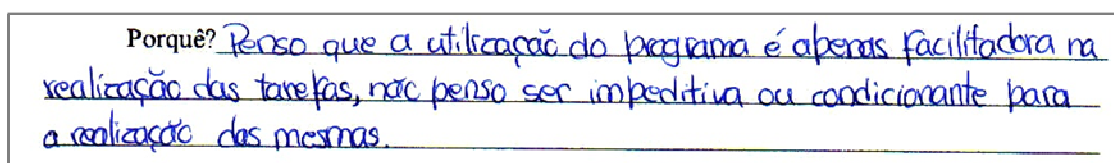 Porquê? Penso que a utilização do programa é apenas facilitadora na
realização das tarefas, não penso ser impeditiva ou condicionante para
a realização das mesmas.